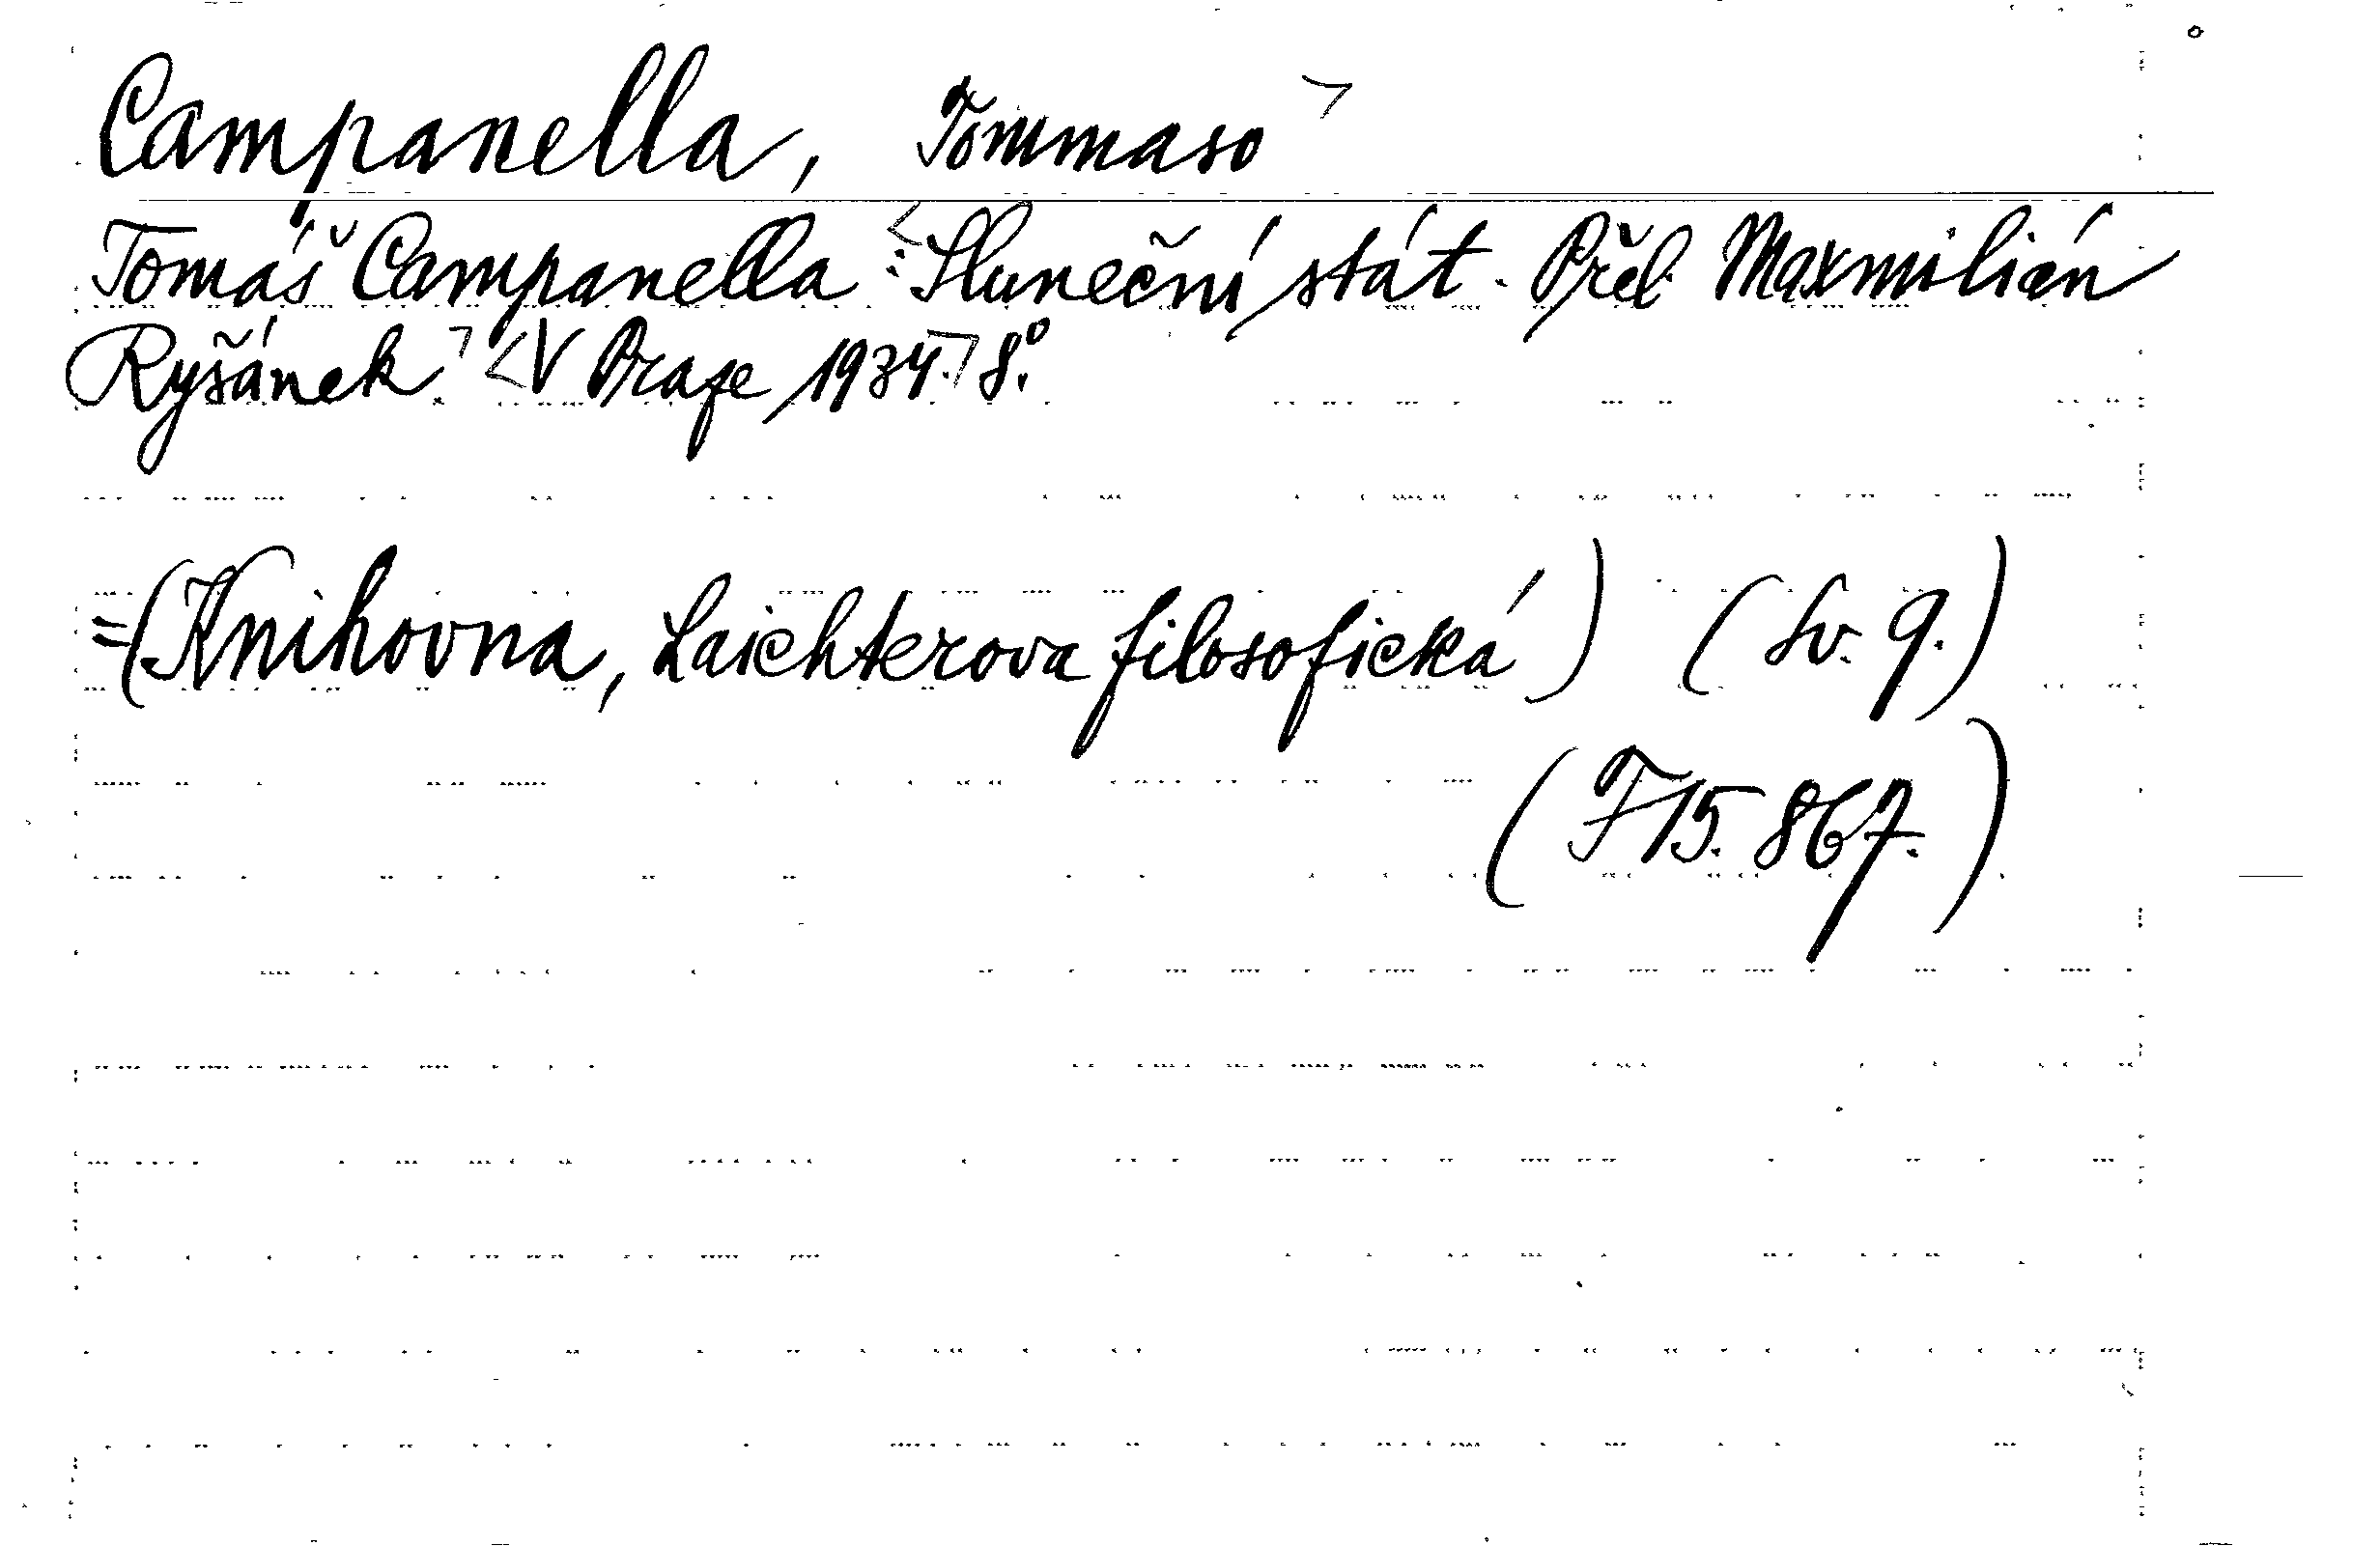 Campanella, Tommaso
Tomáš Campanella: Sluneční stát. Přel. Maxmilián
Ryšánek. V Praze, 1934. 8°.
=(Knihovna, Laichterova filosofická) (Sv. 9.)
(F 15. 867.)